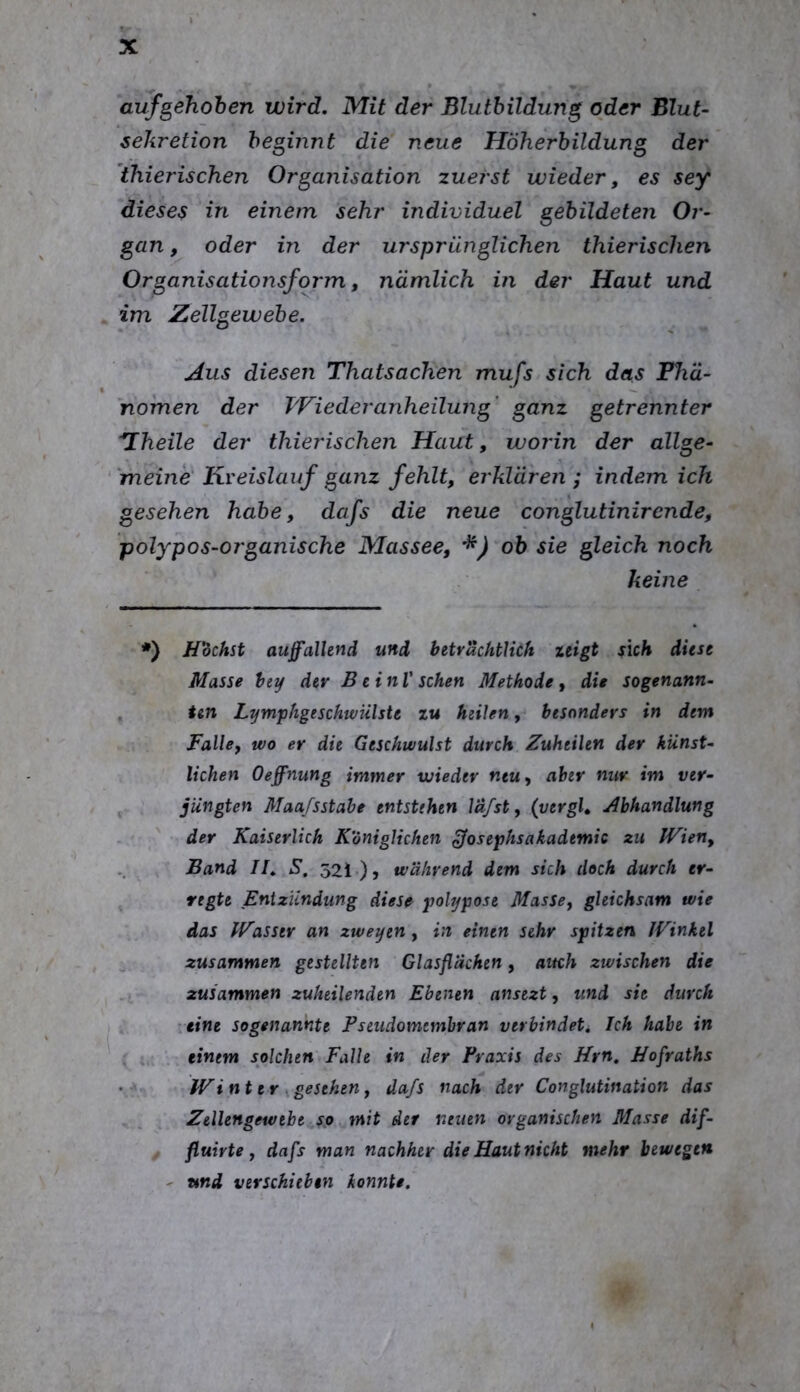 X
aufgehoben wird. Mit der Blutbildung oder Blut-
sekretion beginnt die neue Höherbildung der
thierischen Organisation zuerst wieder, es sey
dieses in einem sehr individuel gebildeten Or-
gan, oder in der ursprünglichen thierischen
Organisationsform, nämlich in der Haut und
im Zellgewebe.
Aus diesen Thatsachen mufs sich das Phä-
nomen der Wiederanheilung ganz getrennter
Theile der thierischen Haut, worin der allge-
meine Kreislauf ganz fehlt, erklären; indem ich
gesehen habe, dafs die neue conglutinirende,
polypos-organische Massee, *) ob sie gleich noch
keine
*) Höchst auffallend und beträchtlich zeigt sich diese
Masse bey der Beinl'schen Methode, die sogenann-
ten Lymphgeschwülste zu heilen, besonders in dem
Falle, wo er die Geschwulst durch Zuheilen der künst-
lichen Oeffnung immer wieder neu, aber nur im ver-
jüngten Maafsstabe entstehen läfst, (vergl. Abhandlung
der Kaiserlich Königlichen Josephsakademie zu Wien,
Band II. S. 321), während dem sich doch durch er-
regte Entzündung diese polypose Masse, gleichsam wie
das Wasser an zweyen, in einen sehr spitzen Winkel
zusammen gestellten Glasflächen, auch zwischen die
zusammen zuheilenden Ebenen ansezt, und sie durch
eine sogenannte Pseudomembran verbindet. Ich habe in
einem solchen Falle in der Praxis des Hrn. Hofraths
Winter gesehen, dafs nach der Conglutination das
Zellengewebe so mit der neuen organischen Masse dif-
fluirte, dafs man nachher die Haut nicht mehr bewegen
und verschieben konnte.